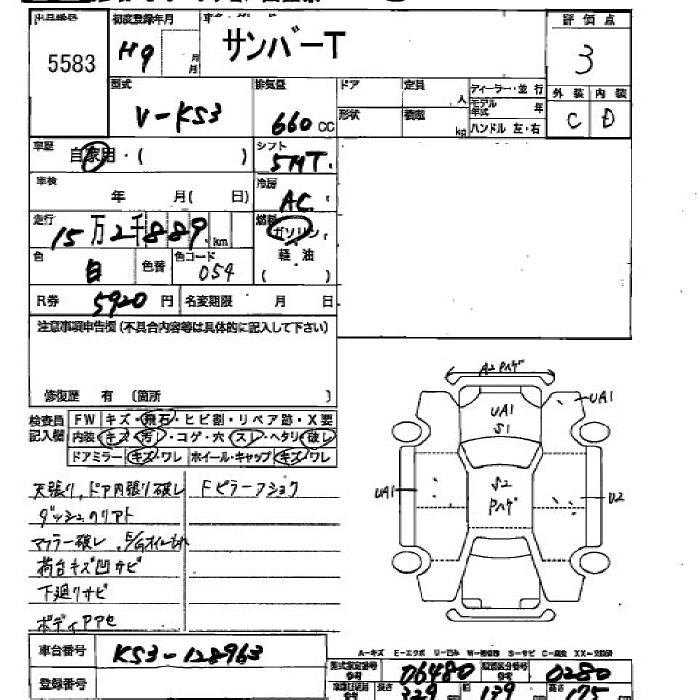 初度登録年月
評価点
5583
H9
月
月
サンバーT
3
型式
排気量
ドア
定員
人
ディーラー・並行
外装
内装
V-KS3
660 cc
形状
積載
kg
モデル年式
年
ハンドル 左・右
C
D
車歴
自家用・( )
シフト
5MT.
車検
年 月( 日)
冷房
AC
走行
15万2千889 km
燃料
ガソリン
軽油
( )
色
白
色替
色コード
054
R券
5920円
名変期限 月 日
注意事項申告欄(不具合内容等は具体的に記入して下さい)
修復歴 有 〔箇所 〕
検査員記入欄
FW
キズ・飛石・ヒビ割・リペア跡・X要
内装
キズ・汚レ・コゲ・穴・スレ・ヘタリ・破レ
ドアミラー
キズ・ワレ
ホイール・キャップ
キズ・ワレ
天張り、ドア内張り破レ
Fピラーフショク
マフラー破レ
荷台キズ凹サビ
下廻りサビ
A2 Pハゲ
UA1
S1
UA1
S2
Pハゲ
UA1
U2
車台番号
KS3-128963
登録番号
A-キズ
型式指定番号
06480
類別区分番号
0280
長さ
329
幅
139
高さ
175